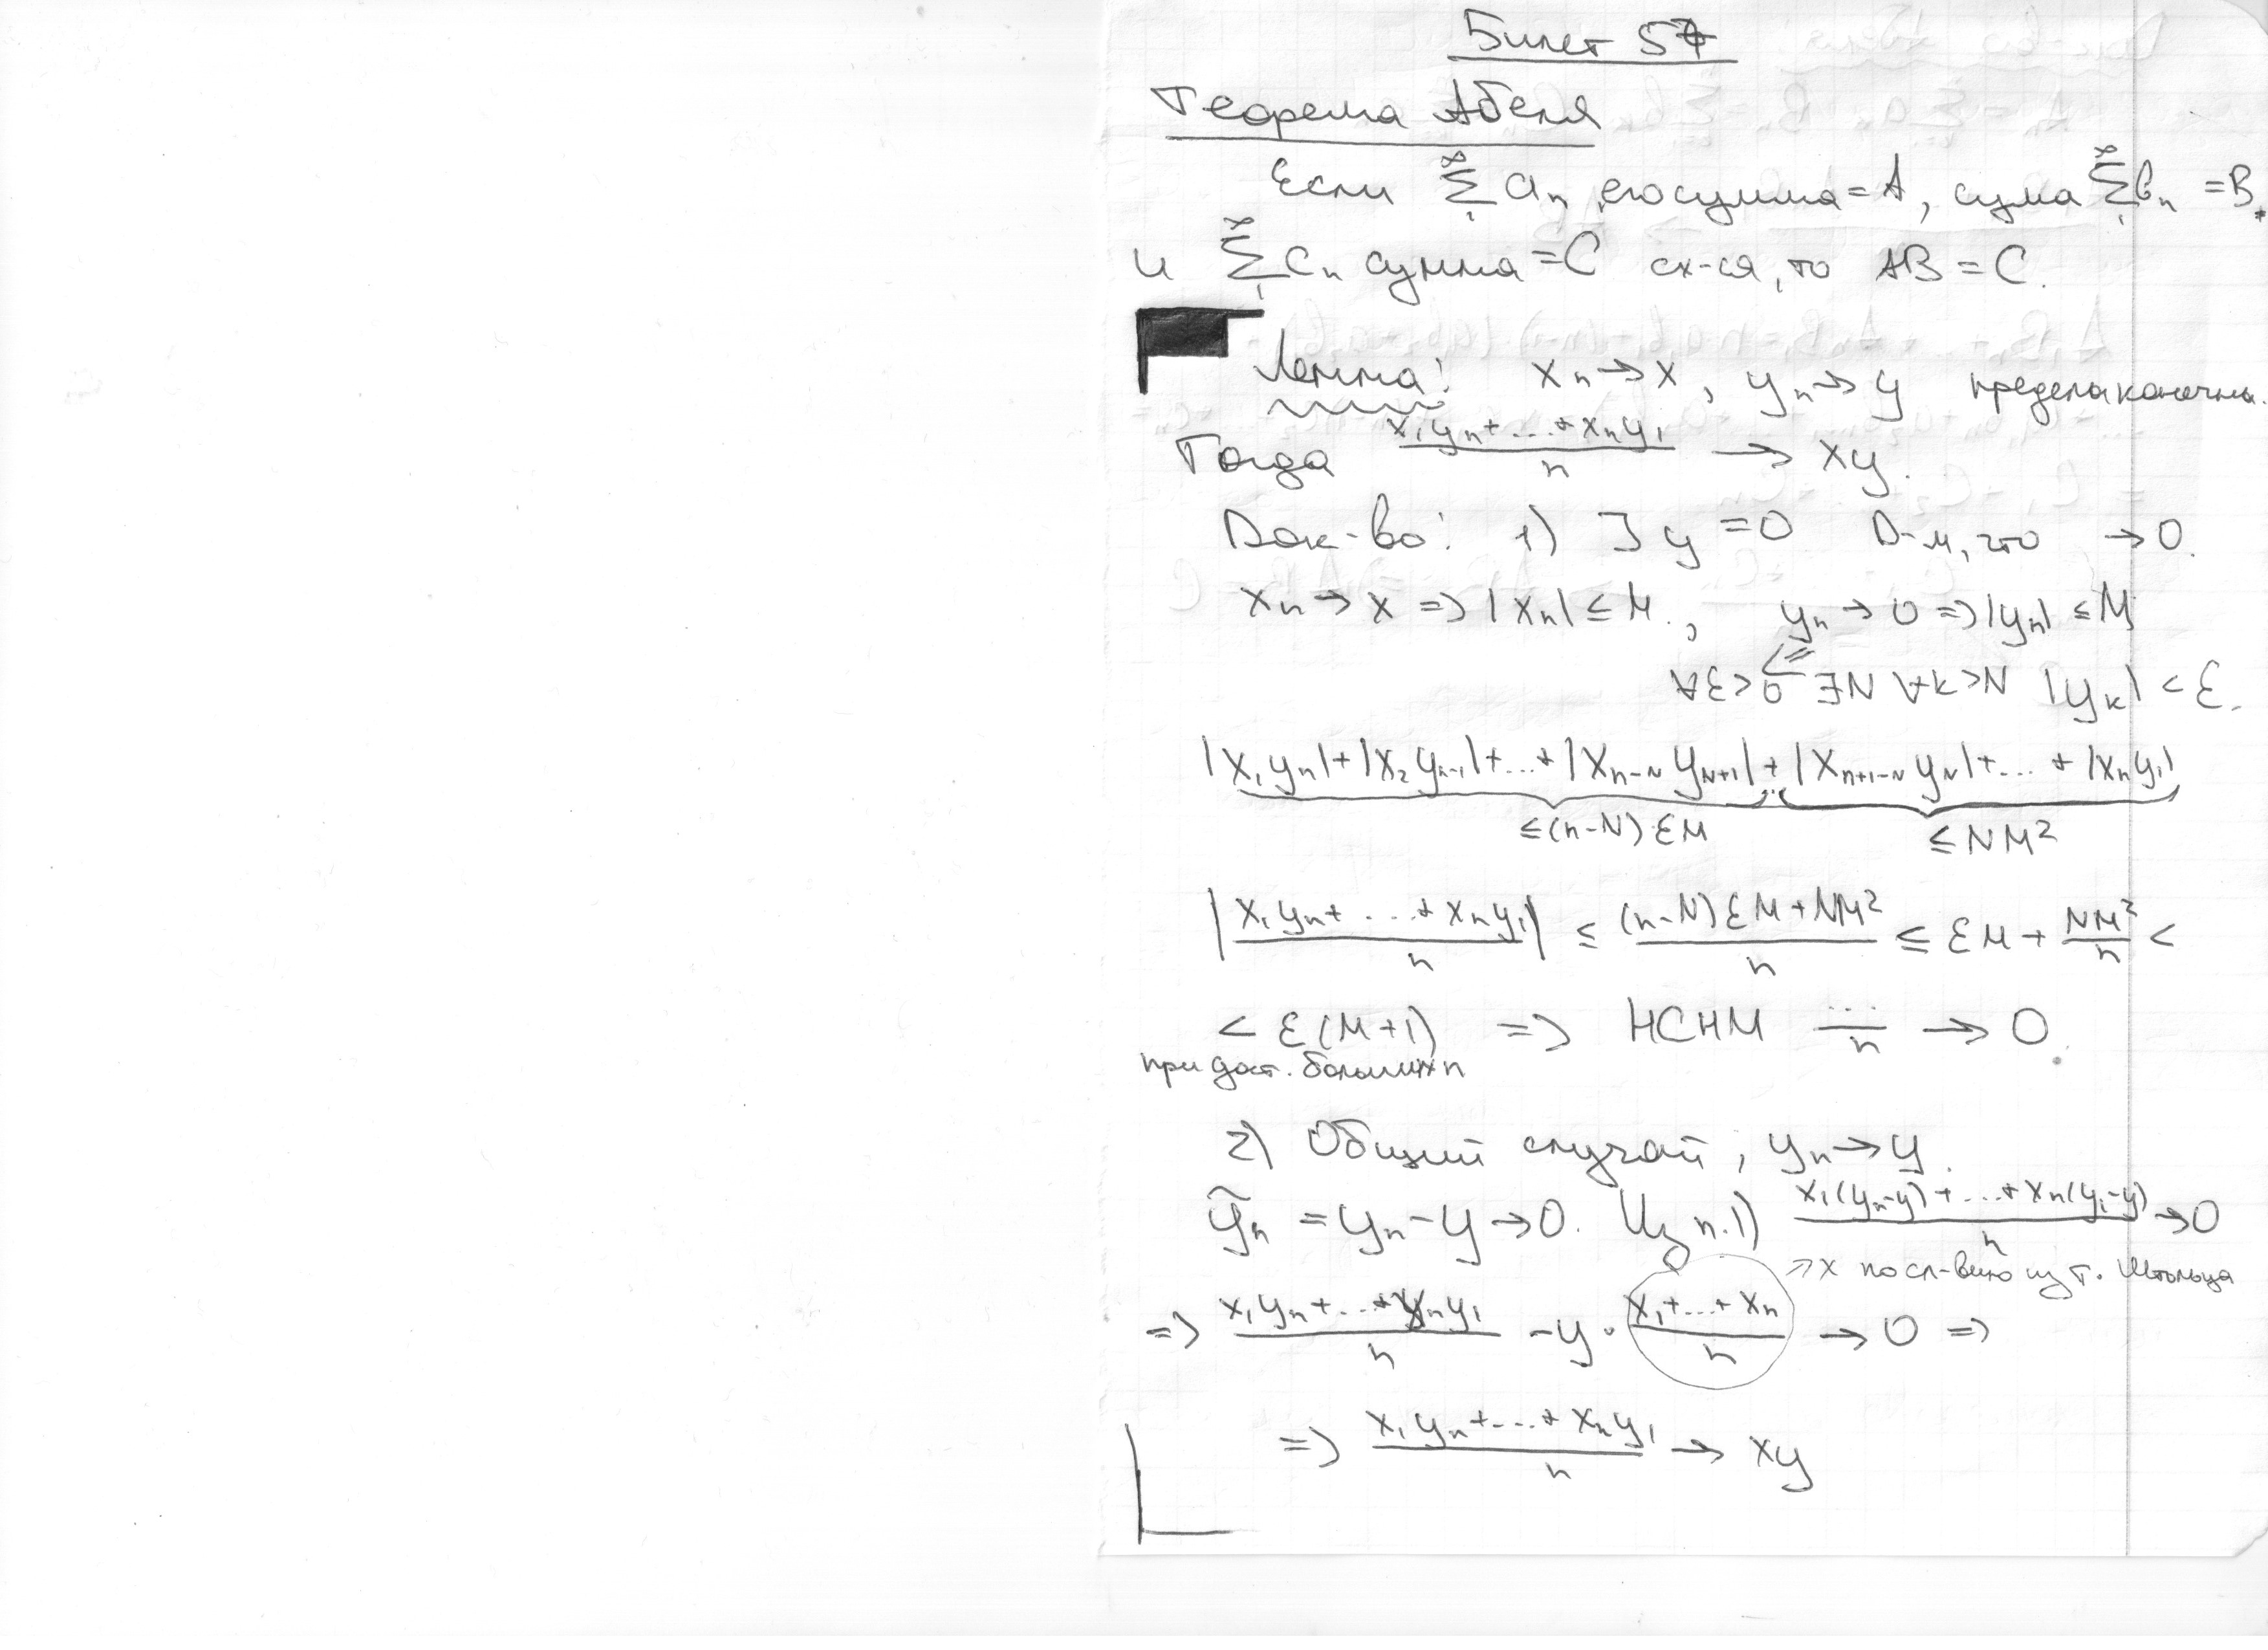 Билет 57
Теорема Абеля
Если ∑₁^∞ aₙ, его сумма = A, сума ∑₁^∞ bₙ = B,
и ∑₁^∞ cₙ сумма = C сх-ся, то AB = C.
Лемма: xₙ → x, yₙ → y предела конечны.
Тогда (x₁yₙ + ... + xₙy₁)/n → xy.
Док-во: 1) ] y = 0 D-м, что → 0.
xₙ → x => |xₙ| ≤ M, yₙ → 0 => |yₙ| ≤ M
∀ε>0 ∃N ∀k>N |yₖ| < ε.
|x₁yₙ| + |x₂yₙ₋₁| + ... + |xₙ₋N yN₊₁| + |xₙ₊₁₋N yN| + ... + |xₙy₁|
≤ (n-N) εM ≤ NM²
|(x₁yₙ + ... + xₙy₁)/n| ≤ ((n-N) εM + NM²)/n ≤ εM + NM²/n <
< ε(M+1) => НСНМ .../n → 0.
при дост. больших n
2) Общий случай, yₙ → y.
ỹₙ = yₙ - y → 0. Из п.1) (x₁(yₙ-y) + ... + xₙ(y₁-y))/n → 0
→ x по сл-вию из т. Штольца
=> (x₁yₙ + ... + xₙy₁)/n - y · (x₁ + ... + xₙ)/n → 0 =>
=> (x₁yₙ + ... + xₙy₁)/n → xy